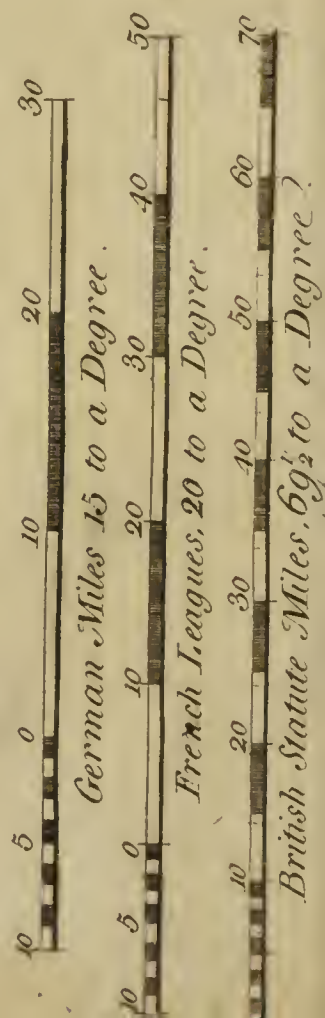 10 5 0 10 20 30
German Miles 15 to a Degree.
10 5 0 10 20 30 40 50
French Leagues, 20 to a Degree.
10 20 30 40 50 60 70
British Statute Miles, 69½ to a Degree